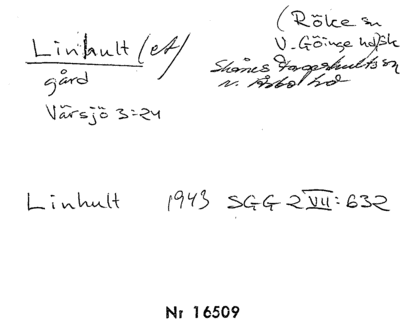 Linhult (et)
gård
Värsjö 3:24
(Röke sn
V. Göinge hd) sk
Skånes Fagerhults sn
N. Åsbo hd
Linhult 1943 SGG 2 VII: 632
Nr 16509